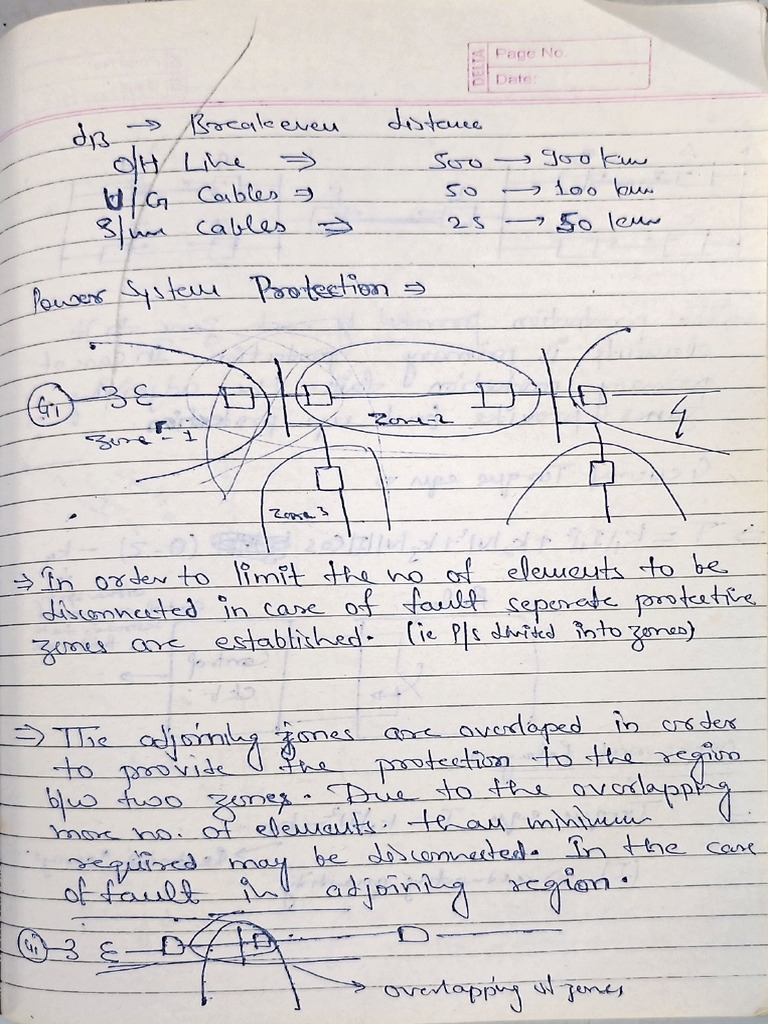 DELTA
Page No.
Date:
dB → Breakeven distance
O/H Line ⇒ 500 → 900 km
U/G Cables ⇒ 50 → 100 km
S/m cables ⇒ 25 → 50 km
Power System Protection ⇒
G1
Zone-1
Zone-2
Zone 3
⇒ In order to limit the no of elements to be
disconnected in case of fault seperate protective
zones are established. (ie P/s divided into zones)
⇒ The adjoining zones are overlaped in order
to provide the protection to the region
b/w two zones. Due to the overlapping
more no. of elements. than minimum
required may be disconnected. In the case
of fault in adjoining region.
G1
overlapping of zones